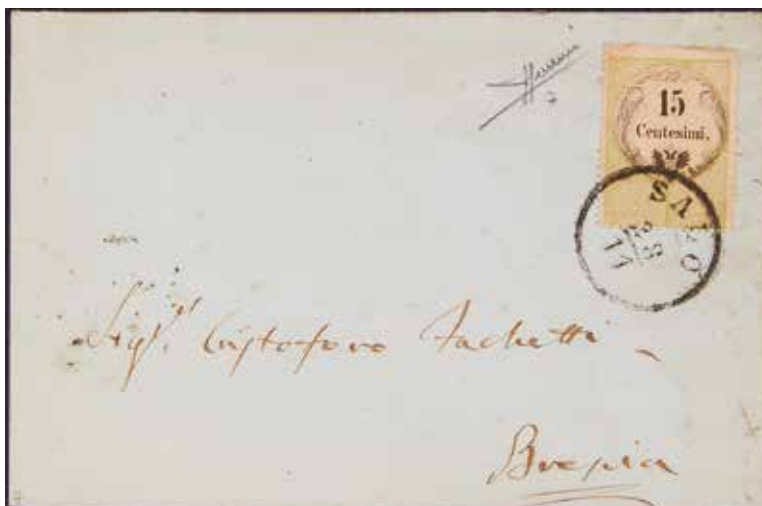 15
Centesimi.
SALO
Sigr. Cristoforo Fachetti
Brescia